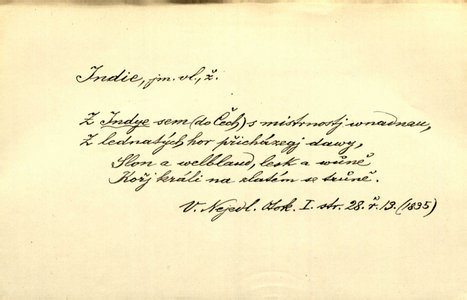 Indie, jm. vl., ž.
Z Indye sem (do Čech) s mistrnostj wnadnau,
Z lednatých hor přicházegj dawy,
Slon a welblaud, lesk a wůně
Kořj králi na zlatém se trůně.
V. Nejedl. Otok. I. str. 28. ř. 13. (1835)